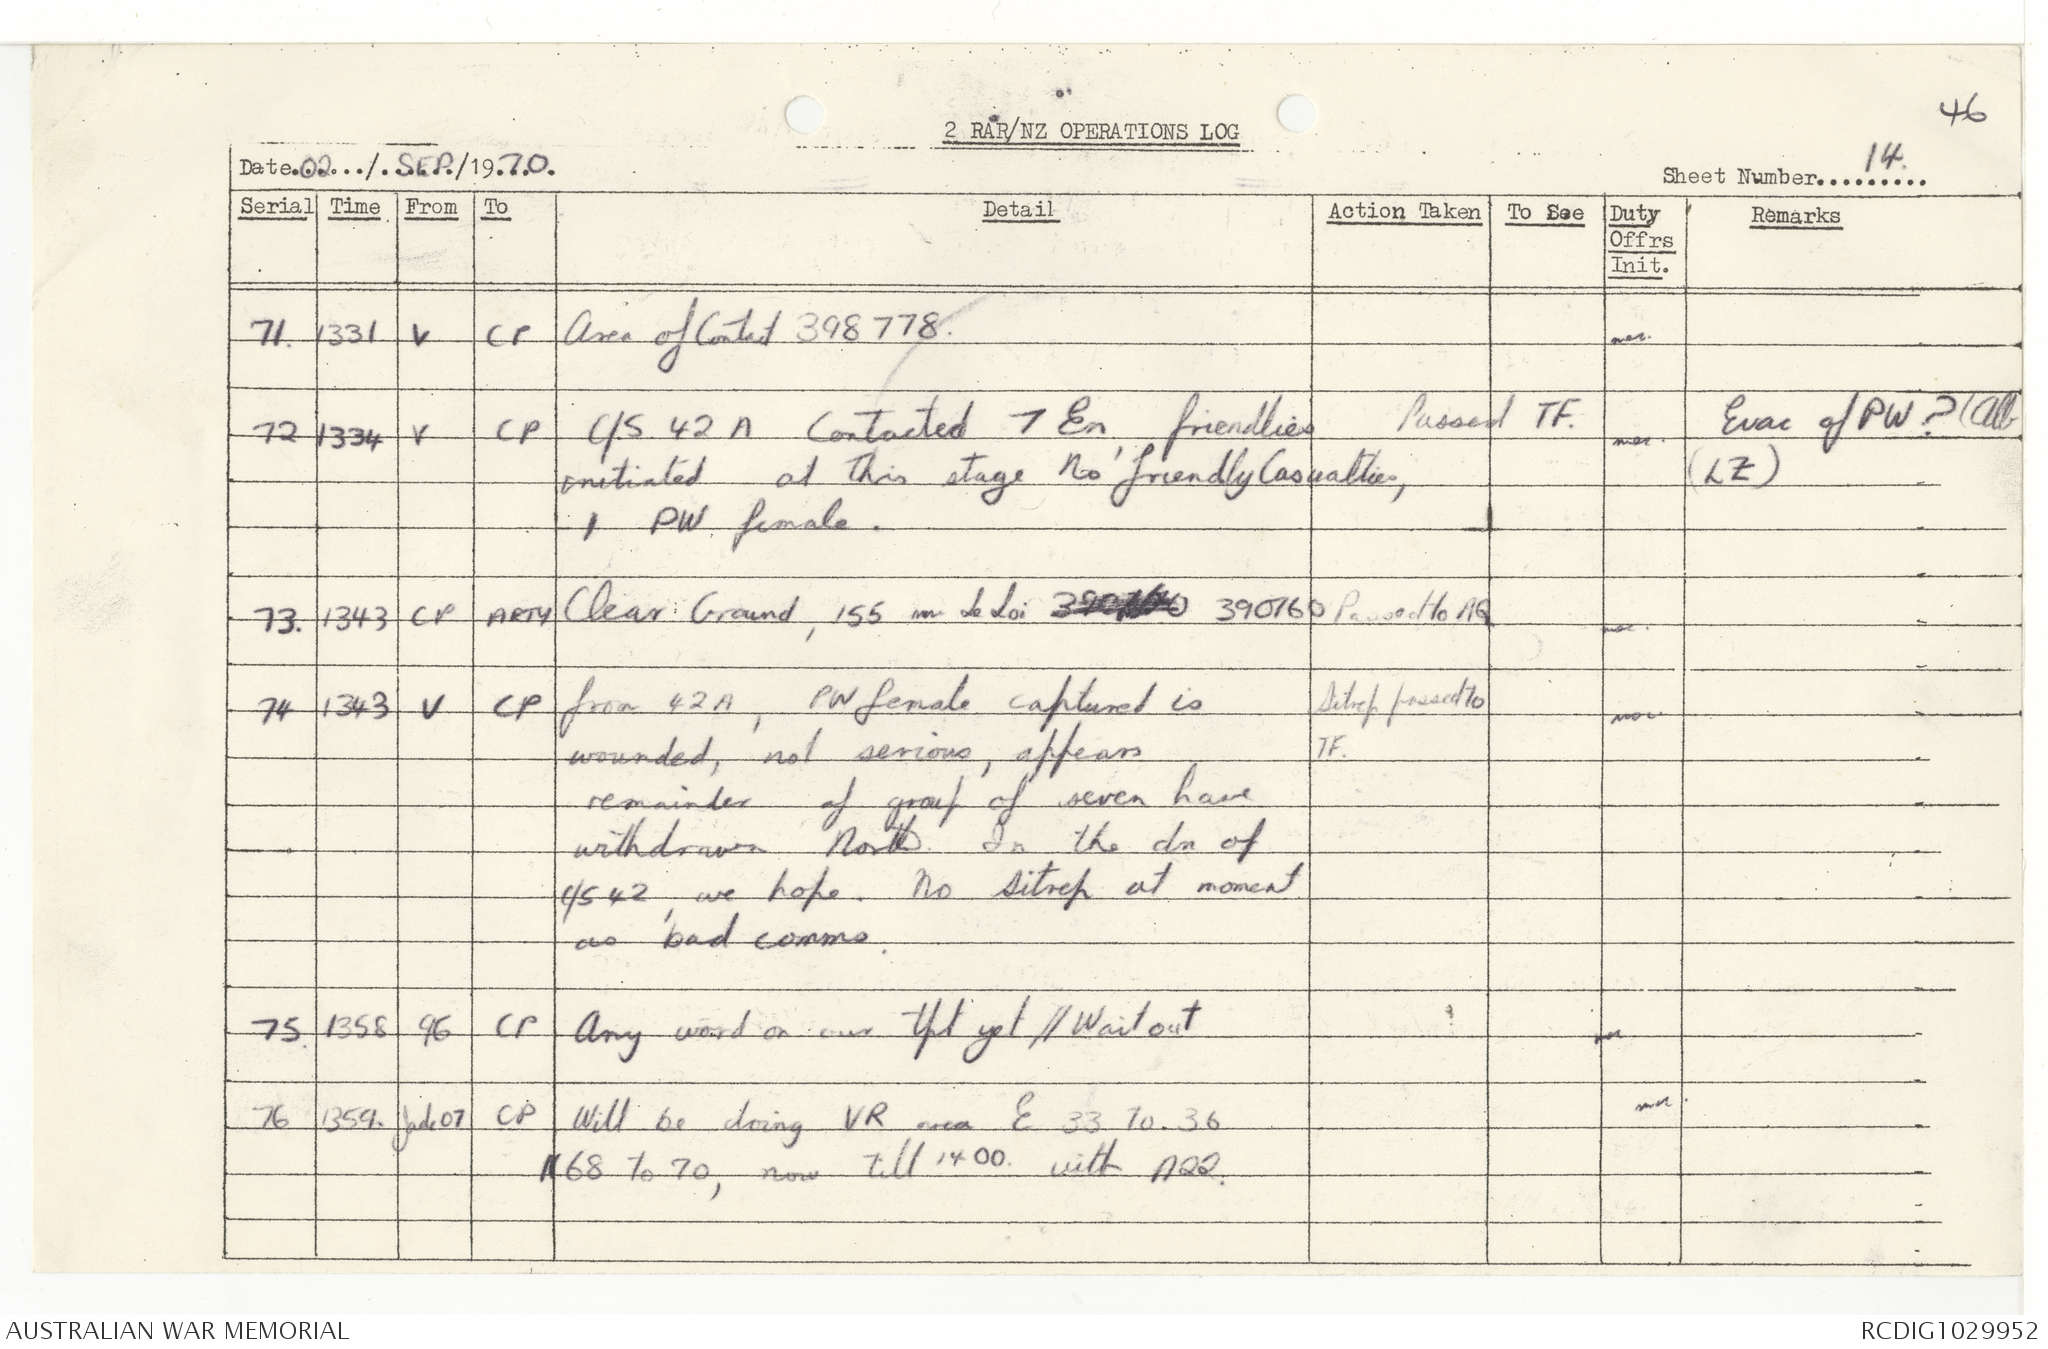 46
2 RAR/NZ OPERATIONS LOG
Date.02.../.SEP./19.70.
Sheet Number.14.
Serial Time From To Detail Action Taken To See Duty Offrs Init. Remarks
71. 1331 V CP Area of Contact 398778.
72 1334 V CP C/S 42A Contacted 7 En, friendlies Passed TF. Evac of PW? (
initiated at this stage No friendly Casualties, (LZ)
1 PW female.
73. 1343 CP ARTY Clear Ground, 155 mm Le Loi 390760 Passed to
74 1343 V CP from 42A, PW female captured is Sitrep passed to
wounded, not serious, appears TF.
remainder of group of seven have
withdrawn North. In the dn of
C/S 42, we hope. No Sitrep at moment
as bad comms.
75. 1358 96 CP Any word on our tpt yet // Wait out
76 1359. Jade 07 CP Will be doing VR area E 33 To. 36
N 68 to 70, now till 1400. with A22.
AUSTRALIAN WAR MEMORIAL
RCDIG1029952